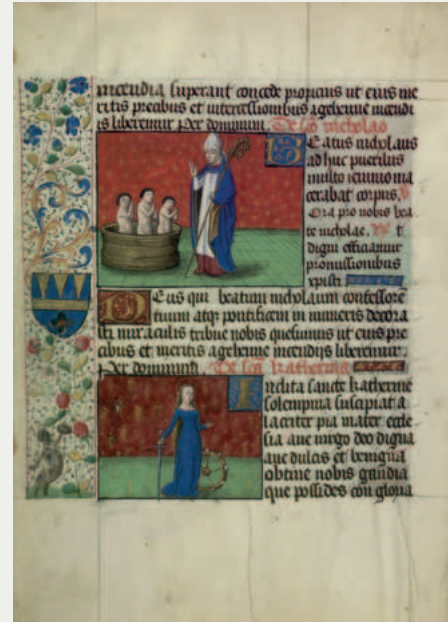 incendia superant concede propicius ut eius me
ritis precibus et intercessionibus a gehenne incendi
is liberemur Per dominum. De sco nicholao
Beatus nicholaus
ad huc puerulus
multo ieiunio ma
cerabat corpus.
Ora pro nobis bea
te nicholae.
digni efficiamur
promissionibus
xpisti
Deus qui beatum nicholaum confessore
tuum atqz pontificem in numeris decora
sti miraculis tribue nobis quesumus ut eius pre
cibus et meritis a gehenne incendijs liberemur.
Per dominum. De sca katherina
Indita sancte katherine
solempnia suscipiat a
lacriter pia mater eccle
sia aue uirgo deo digna
aue dulcis et benigna
obtine nobis gaudia
que possides con gloria